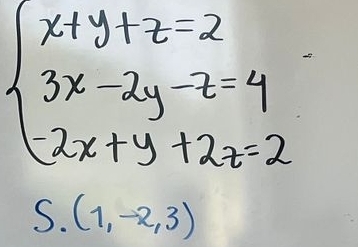 x+y+z=2
3x-2y-z=4
-2x+y+2z=2
S.(1,-2,3)